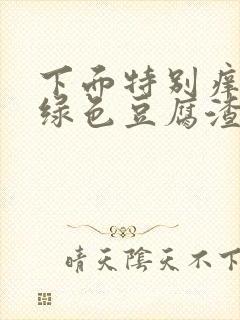 下面特别痒
绿色豆腐渣
晴天陰天不下